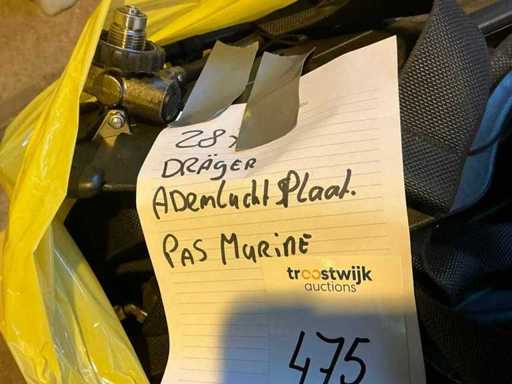 28x
DRÄGER
ADemlucht Plaat.
PAS MARINE
troostwijk
auctions
475